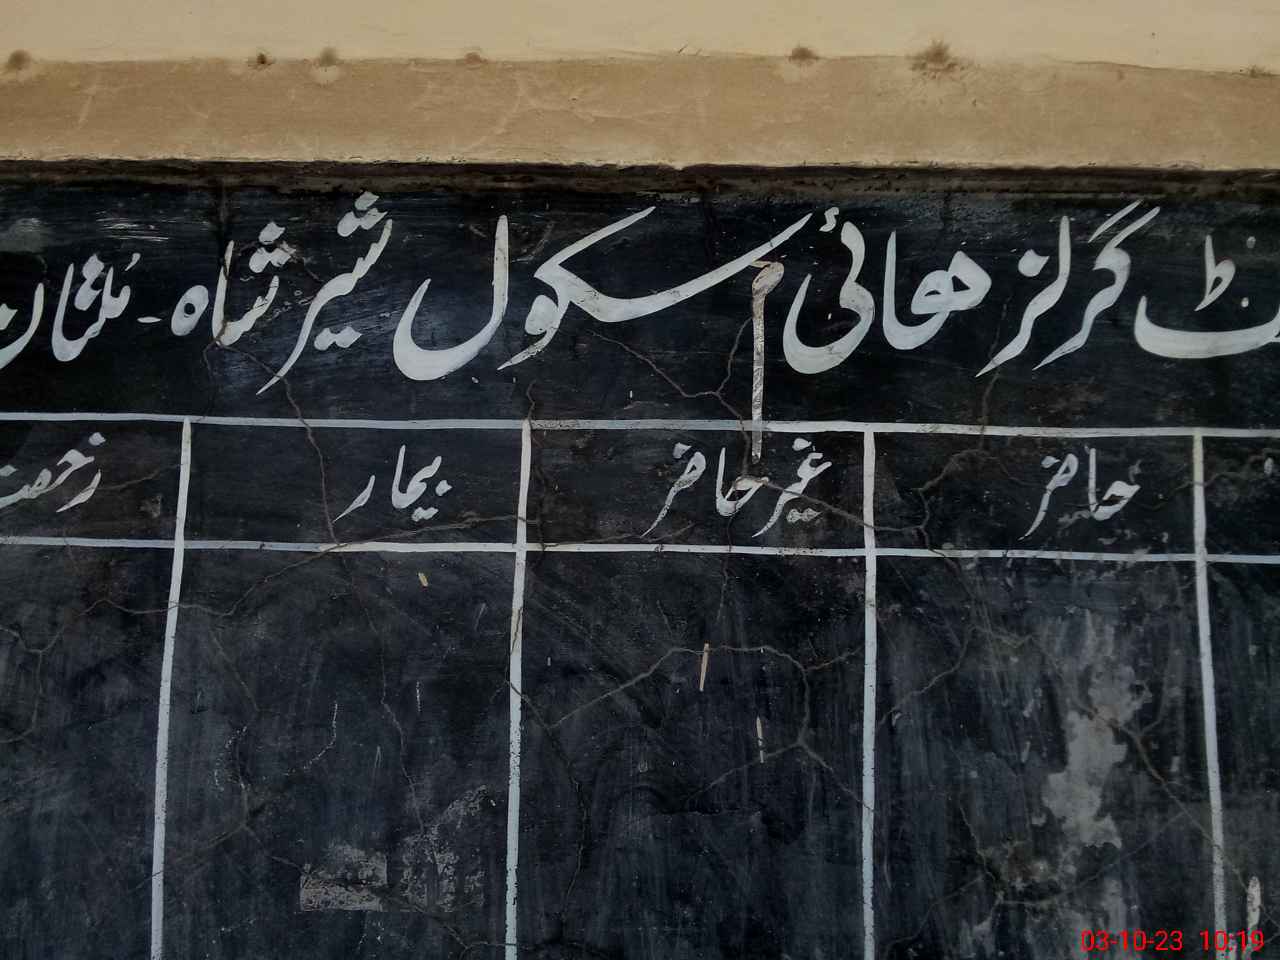 گرلز ھائی سکول شیر شاہ ۔ ملتان
حاضر غیر حاضر بیمار رخصت
03-10-23 10:19